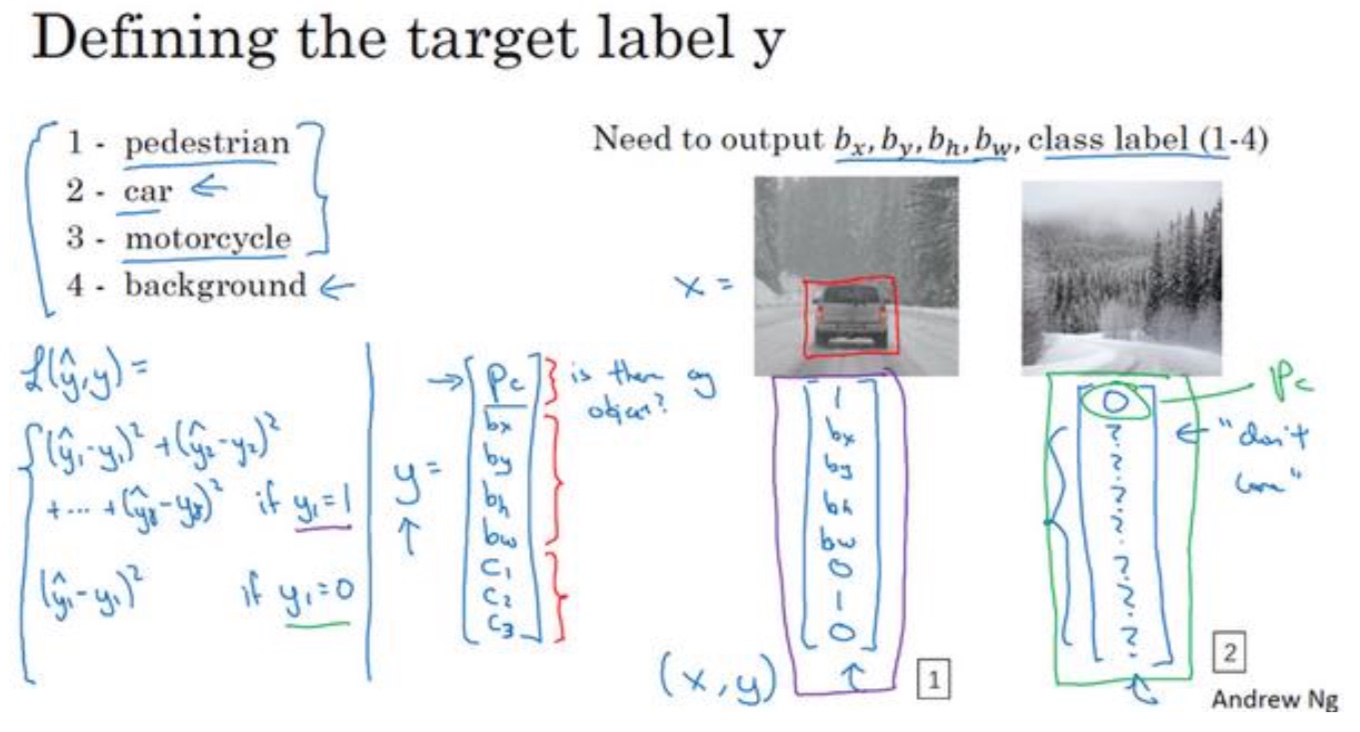 Defining the target label y
1 - pedestrian
2 - car ←
3 - motorcycle
4 - background ←
Need to output bₓ, b_y, b_h, b_w, class label (1-4)
x =
L(ŷ,y) =
(ŷ₁-y₁)² + (ŷ₂-y₂)²
+ ... + (ŷ₈-y₈)² if y₁=1
(ŷ₁-y₁)² if y₁=0
y =
↑
→ Pc
bx
by
bh
bw
C₁
C₂
C₃
is there any
object?
1
bx
by
bh
bw
0
1
0
(x,y)
1
0
?
?
?
?
?
?
?
Pc
← "don't
care"
2
Andrew Ng